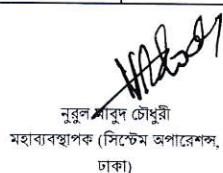 নুরুল আবুদ চৌধুরী
মহাব্যবস্থাপক (সিস্টেম অপারেশন্স,
ঢাকা)